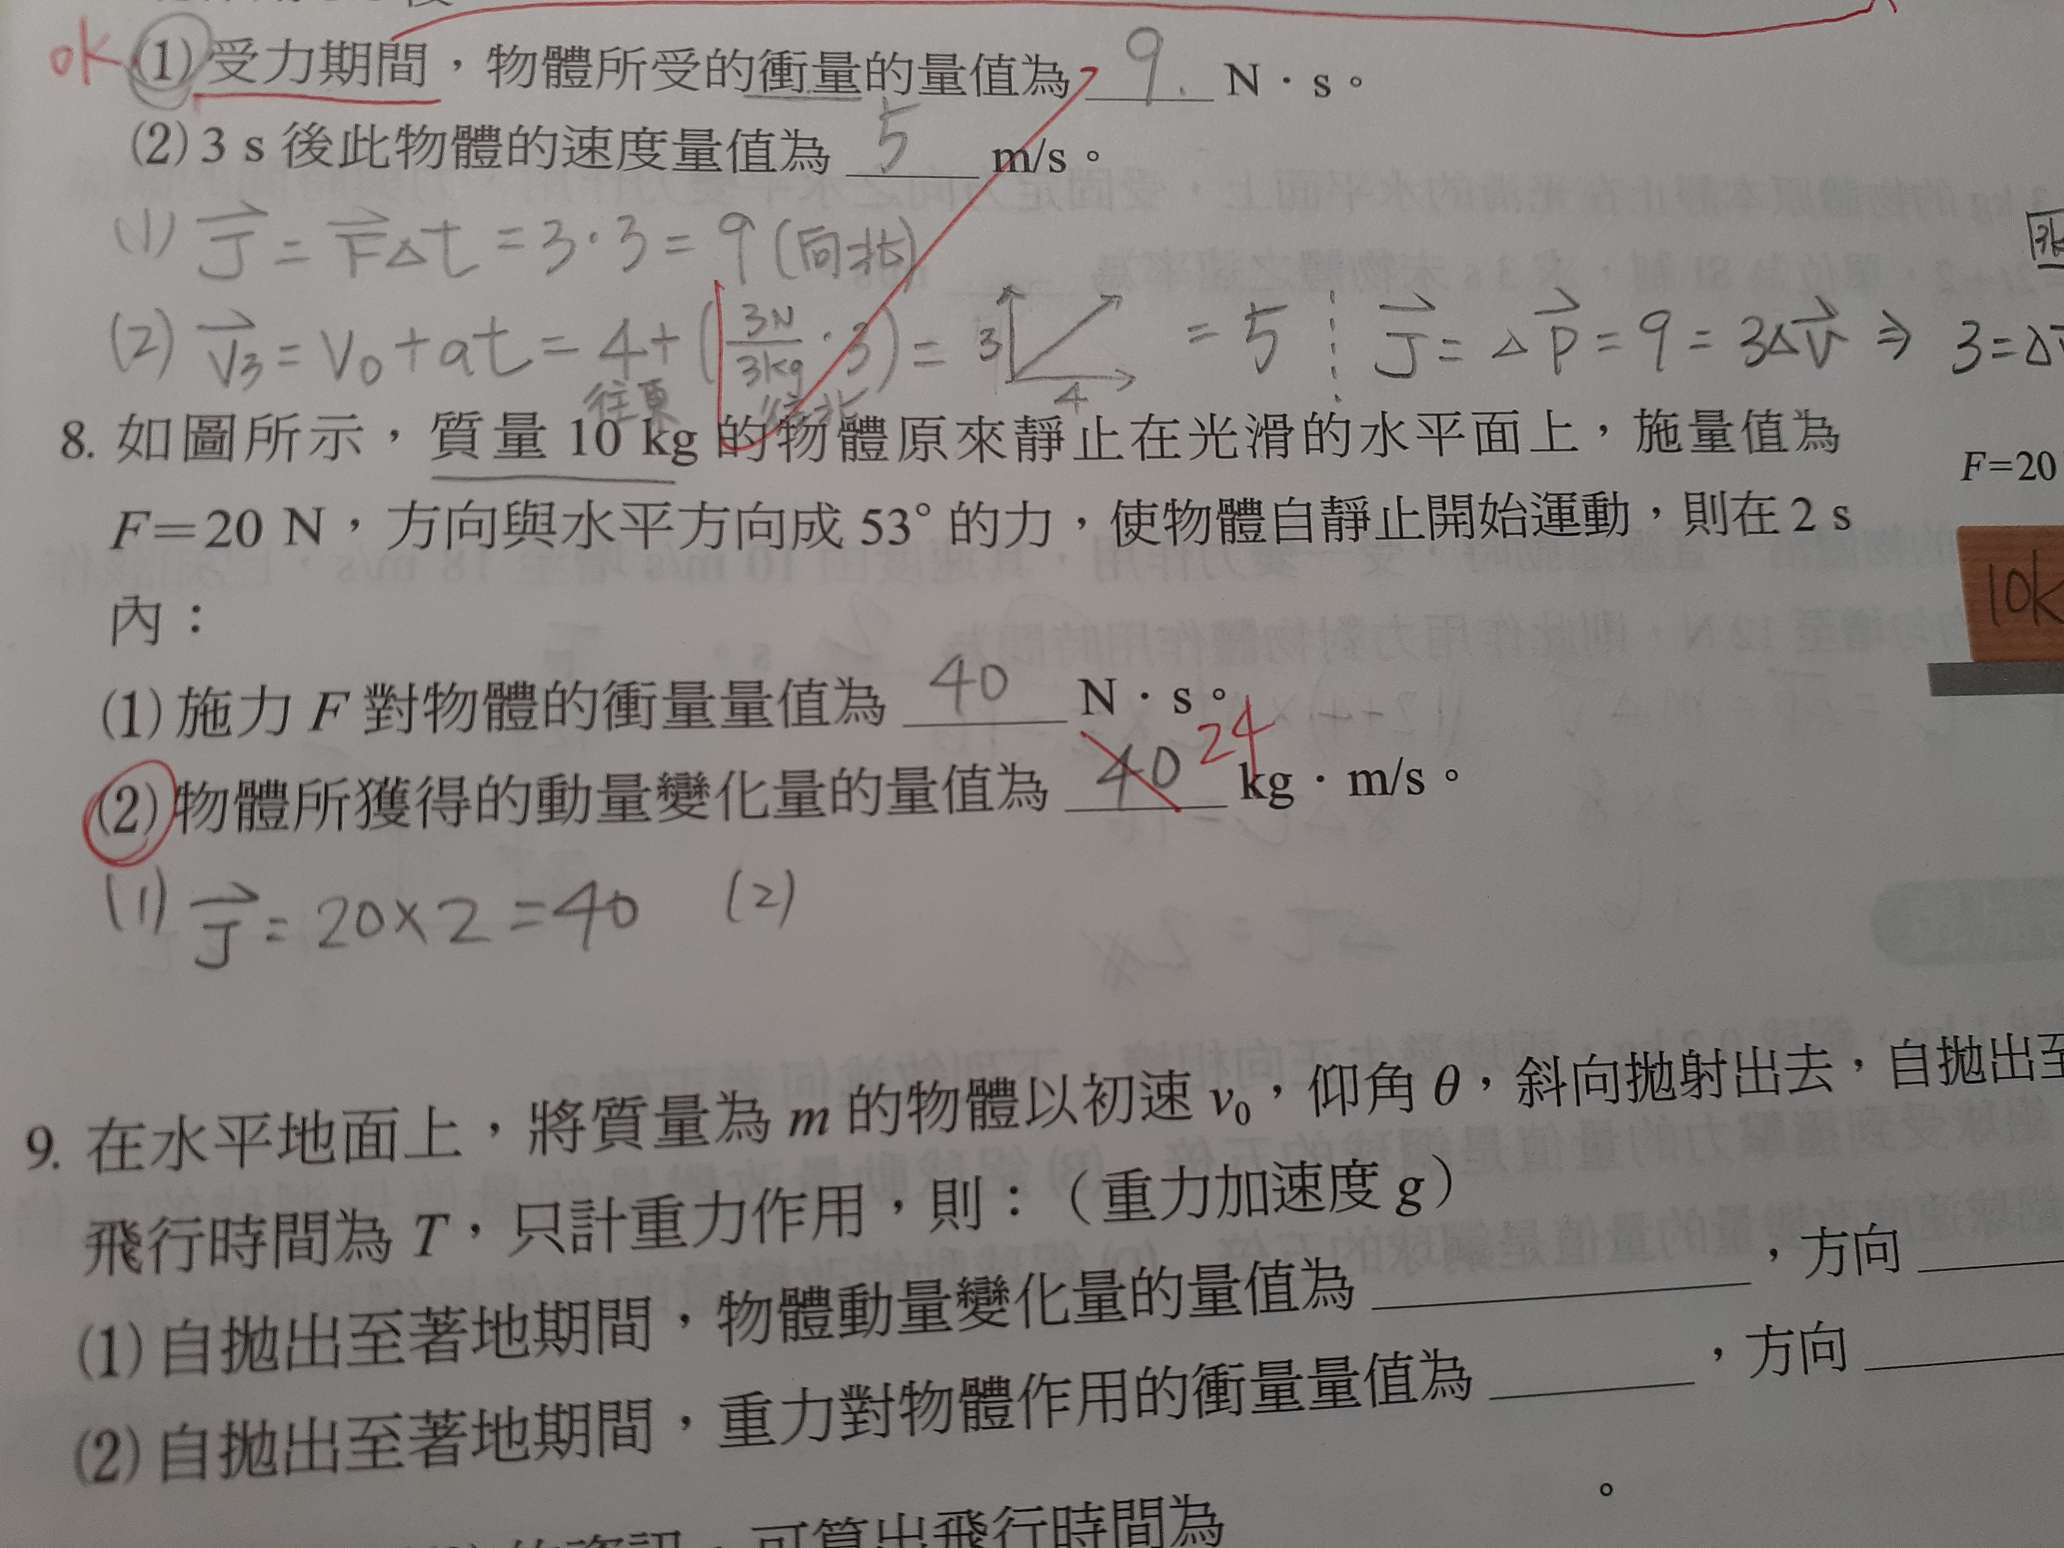 ok (1)受力期間，物體所受的衝量的量值為 9 N．s。
(2) 3 s 後此物體的速度量值為 5 m/s。
(1) J = F△t = 3·3 = 9 (向北)
(2) V3 = V0 + at = 4 + (3N/3kg · 3) = 3 4 = 5 J = △P = 9 = 3△V ⇒ 3 = △V
往東 往北
8. 如圖所示，質量 10 kg 的物體原來靜止在光滑的水平面上，施量值為
F＝20 N，方向與水平方向成 53° 的力，使物體自靜止開始運動，則在 2 s
內：
F=20
10k
(1) 施力 F 對物體的衝量量值為 40 N．s。
(2) 物體所獲得的動量變化量的量值為 40 24 kg．m/s。
(1) J = 20×2 = 40 (2)
9. 在水平地面上，將質量為 m 的物體以初速 v0，仰角 θ，斜向拋射出去，自拋出至
飛行時間為 T，只計重力作用，則：（重力加速度 g）
(1) 自拋出至著地期間，物體動量變化量的量值為 ，方向
(2) 自拋出至著地期間，重力對物體作用的衝量量值為 ，方向
。
可算出飛行時間為